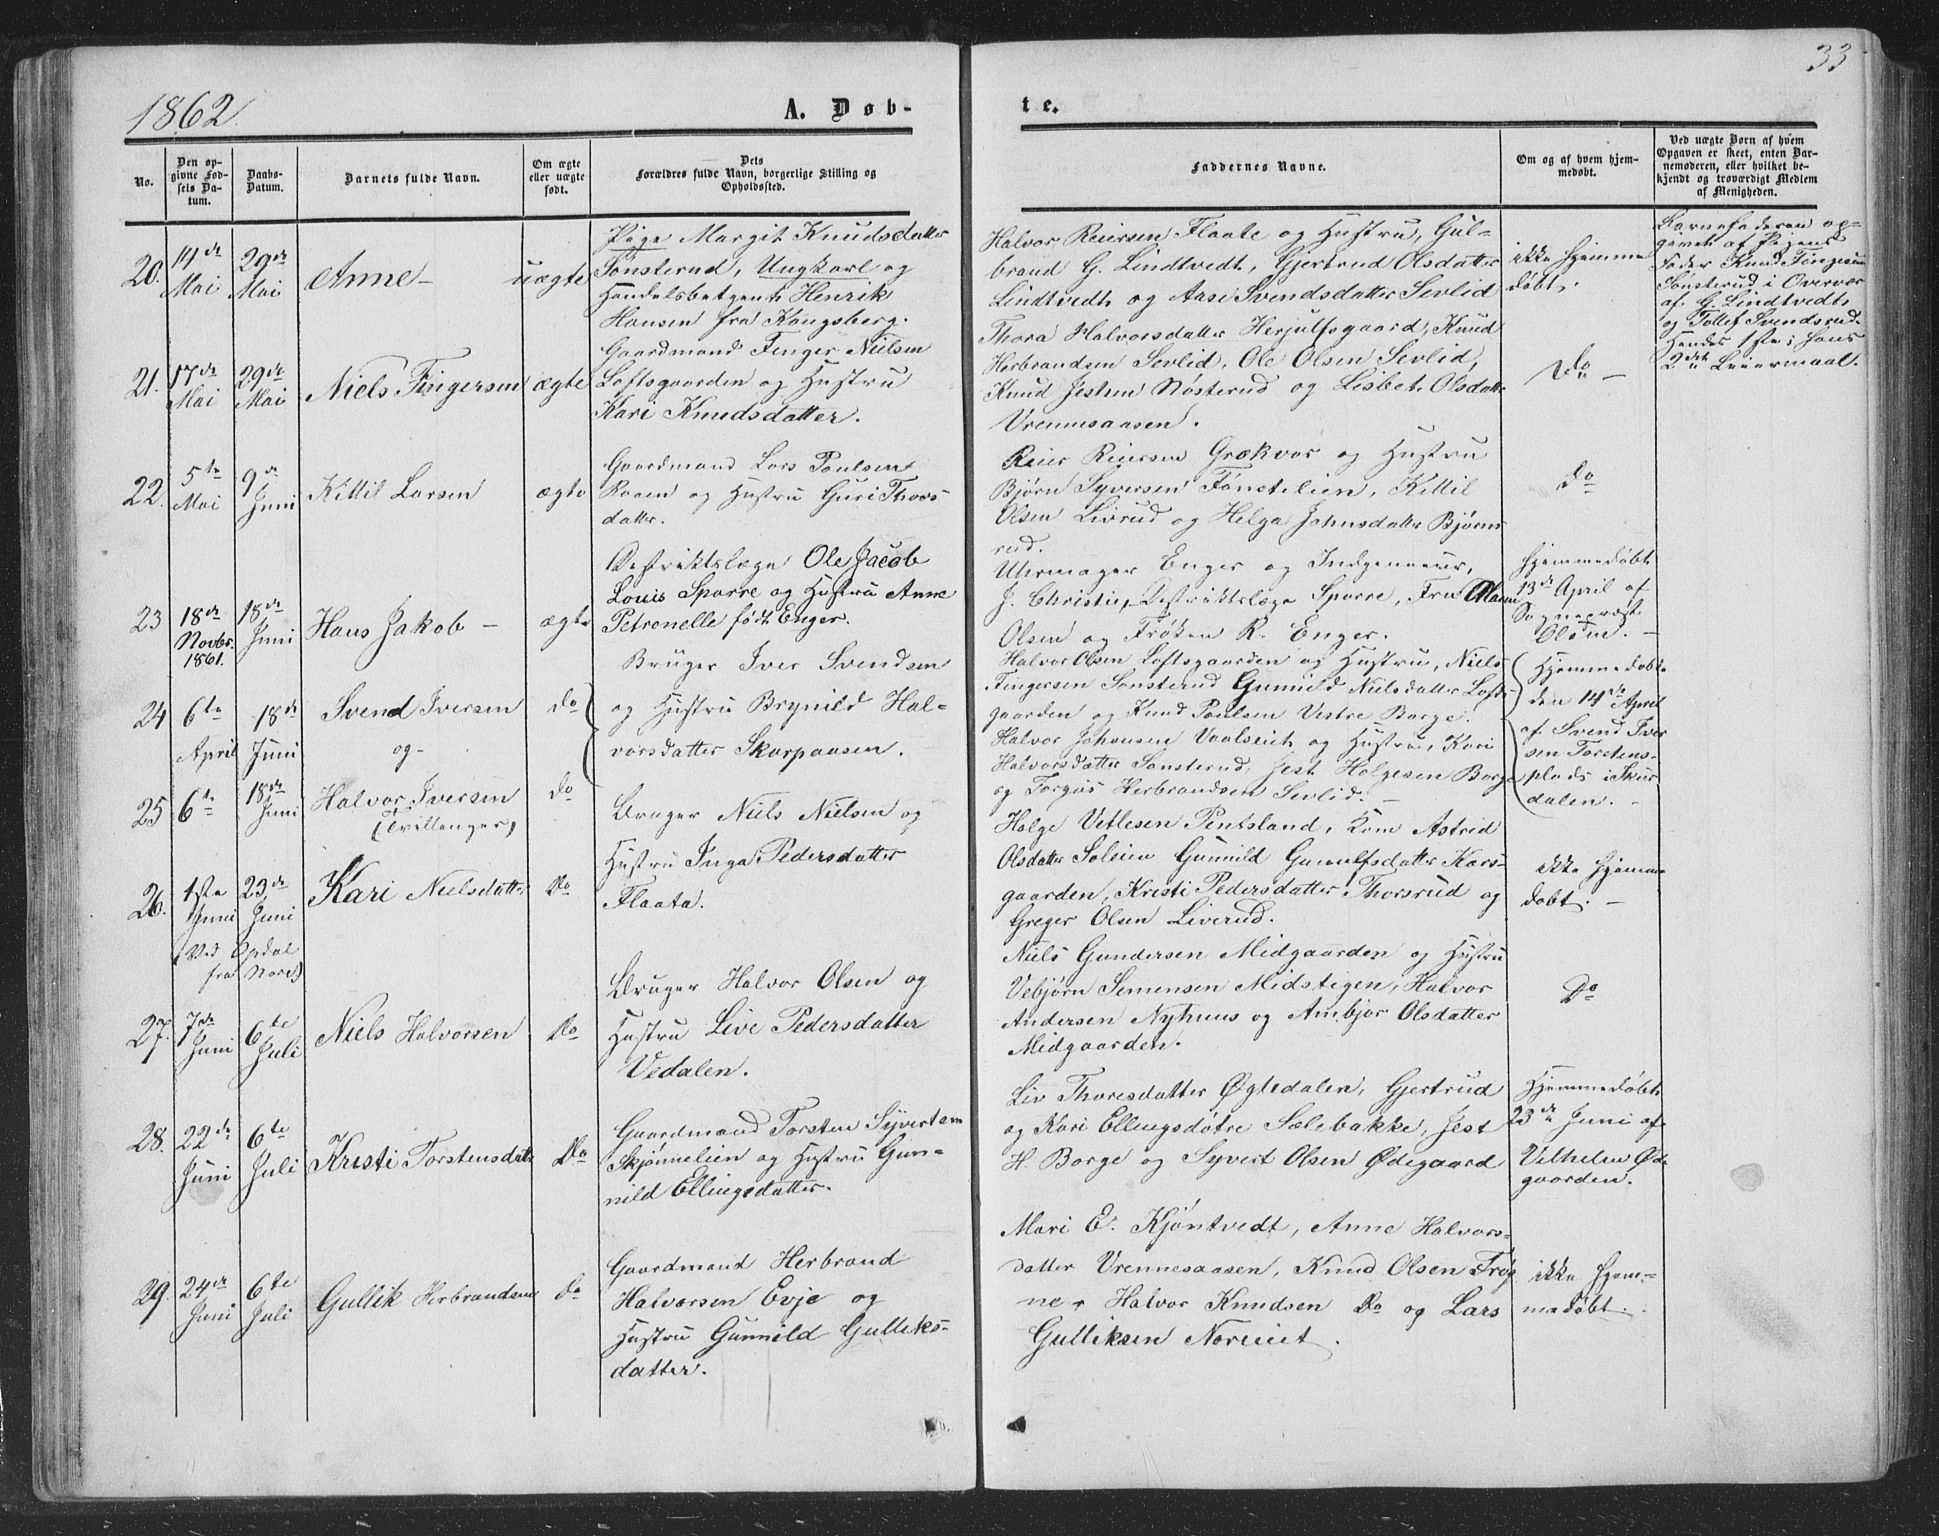 33
1862.
A. Døb-
te.
No.
Den op-
givne Fød-
sels Da-
tum.
Daabs-
Datum.
Barnets fulde Navn.
Om ægte
eller uægte
født.
Dets
Forældres fulde Navn, borgerlige Stilling og
Opholdssted.
Faddernes Navne.
Om og af hvem hjem-
medøbt.
Ved uægte Børn af hvem
Opgaven er skeet, enten Bar-
nemoderen, eller hvilket be-
kjendt og troværdigt Medlem
af Menigheden.
20.
14de
Mai
29de
Mai
Anne –
uægte
Pige Margit Knudsdatter
Sønsterud, Ungkarl og
Handelsbetjent Henrik
Hansen fra Kongsberg.
Halvor Reiersen Flaate og Hustru, Gul-
brand G. Lindtvedt, Gjertrud Olsdatter
Lindtvedt og Aase Svendsdatter Sevlid
ikke hjemme
døbt.
Barnefaderen op-
given af Pigens
Fader Knud Fingersen
Sønsterud i Overvær
af G. Lindtvedt
og Tollef Svendsrud.
Hendes 1ste, Hans
2det Leiermaal.
21.
17de
Mai
29de
Mai
Niels Fingersen
ægte
Gaardmand Finger Nielsen
Loftsgaarden og Hustru
Kari Knudsdatter.
Thora Halvorsdatter Herjulfsgaard, Knud
Herbrandsen Sevlid, Ole Olsen Sevlid,
Knud Jesten Nøsterud og Lisbet Olsdatter
Vrennesaasen.
Do –
22.
5te
Mai
9de
Juni
Kittil Larsen
ægte
Gaardmand Lars Paulsen
Raaen og Hustru Guri Thors-
datter.
Reier Reiersen Grækvar og Hustru
Bjørn Syversen Fønetelien, Kittil
Olsen Livrud og Helga Johnsdatter Bjøens-
rud.
Do
23
18de
Novbr.
1861.
18de
Juni
Hans Jakob –
ægte
Destriktslæge Ole Jacob
Louis Sparre og Hustru Anne
Petronelle født Enger.
Uhrmager Enger og Indgenieur,
J. Christie, Destriktslæge Sparre, Fru Maren
Olsen og Frøken R. Enger.
Hjemmedøbt
13de April af
Sognepræst
Olsen. –
24
6te
April
18de
Juni
Svend Iversen
og –
Do
Bruger Iver Svendsen
og Hustru Brynild Hal-
vorsdatter Skarpaasen.
Halvor Olsen Loftsgaarden og Hustru, Niels
Fingersen Sønsterud Gunnild Nielsdatter Lofts-
gaarden og Knud Paulsen Vestre Borge.
Hjemmedøbt
den 14de April
af Svend Iver-
sen Torstens-
plads i Skur
dalen. –
25
6te
18de
Juni
Halvor Iversen
(Tvillenger)
Do
Halvor Johansen Vaalseiet og Hustru, Kari
Halvorsdatter Sønsterud, Jest Helgesen Borge
og Torgus Herbrandsen Sevlid. –
26.
1ste
Juni
23de
Juni
(Ved Opdal
fra Nore)
Kari Nielsdatter
Do
Bruger Niels Nielsen og
Hustru Inga Pedersdatter
Flaata.
Helge Vetlesen Pentsland, Kone Astrid
Olsdatter Soleim Gunnild Gunnulfsdatter Kors-
gaarden, Kristi Pedersdatter Thorsrud og
Greger Olsen Liverud.
ikke hjemme
døbt. –
27.
7de
Juni
6te
Juli
Niels Halvorsen
Do
Bruger Halvor Olsen og
Hustru Live Pedersdatter
Vedalen.
Niels Gundersen Midgaarden og Hustru
Vebjørn Semensen Midstigen, Halvor
Andersen Nyhuus og Ambjør Olsdatter
Midgaarden.
Do
28.
22de
Juni
6te
Juli
Kristi Torstensdatter
Do
Gaardmand Torsten Syvertsen
Skjønnelien og Hustru Gun-
nild Ellingsdatter.
Liv Thoresdatter Øgledalen, Gjertrud
og Kari Ellingsdøtre Sælebakke, Jest
H. Borge og Syvert Olsen Ødegaard
Hjemmedøbt
23de Juni af
Vilhelm Øde
gaarden.
29.
24de
Juni
6te
Juli
Gullik Herbrandsen
Do
Gaardmand Herbrand
Halvorsen Evje og
Hustru Gunnild Gulliks-
datter.
Mari E. Kjøntvedt, Anne Halvors-
datter Vrennesaasen, Knud Olsen Frøg
ne, Halvor Knudsen Do og Lars
Gulliksen Noreiet.
ikke hjem-
medøbt. .